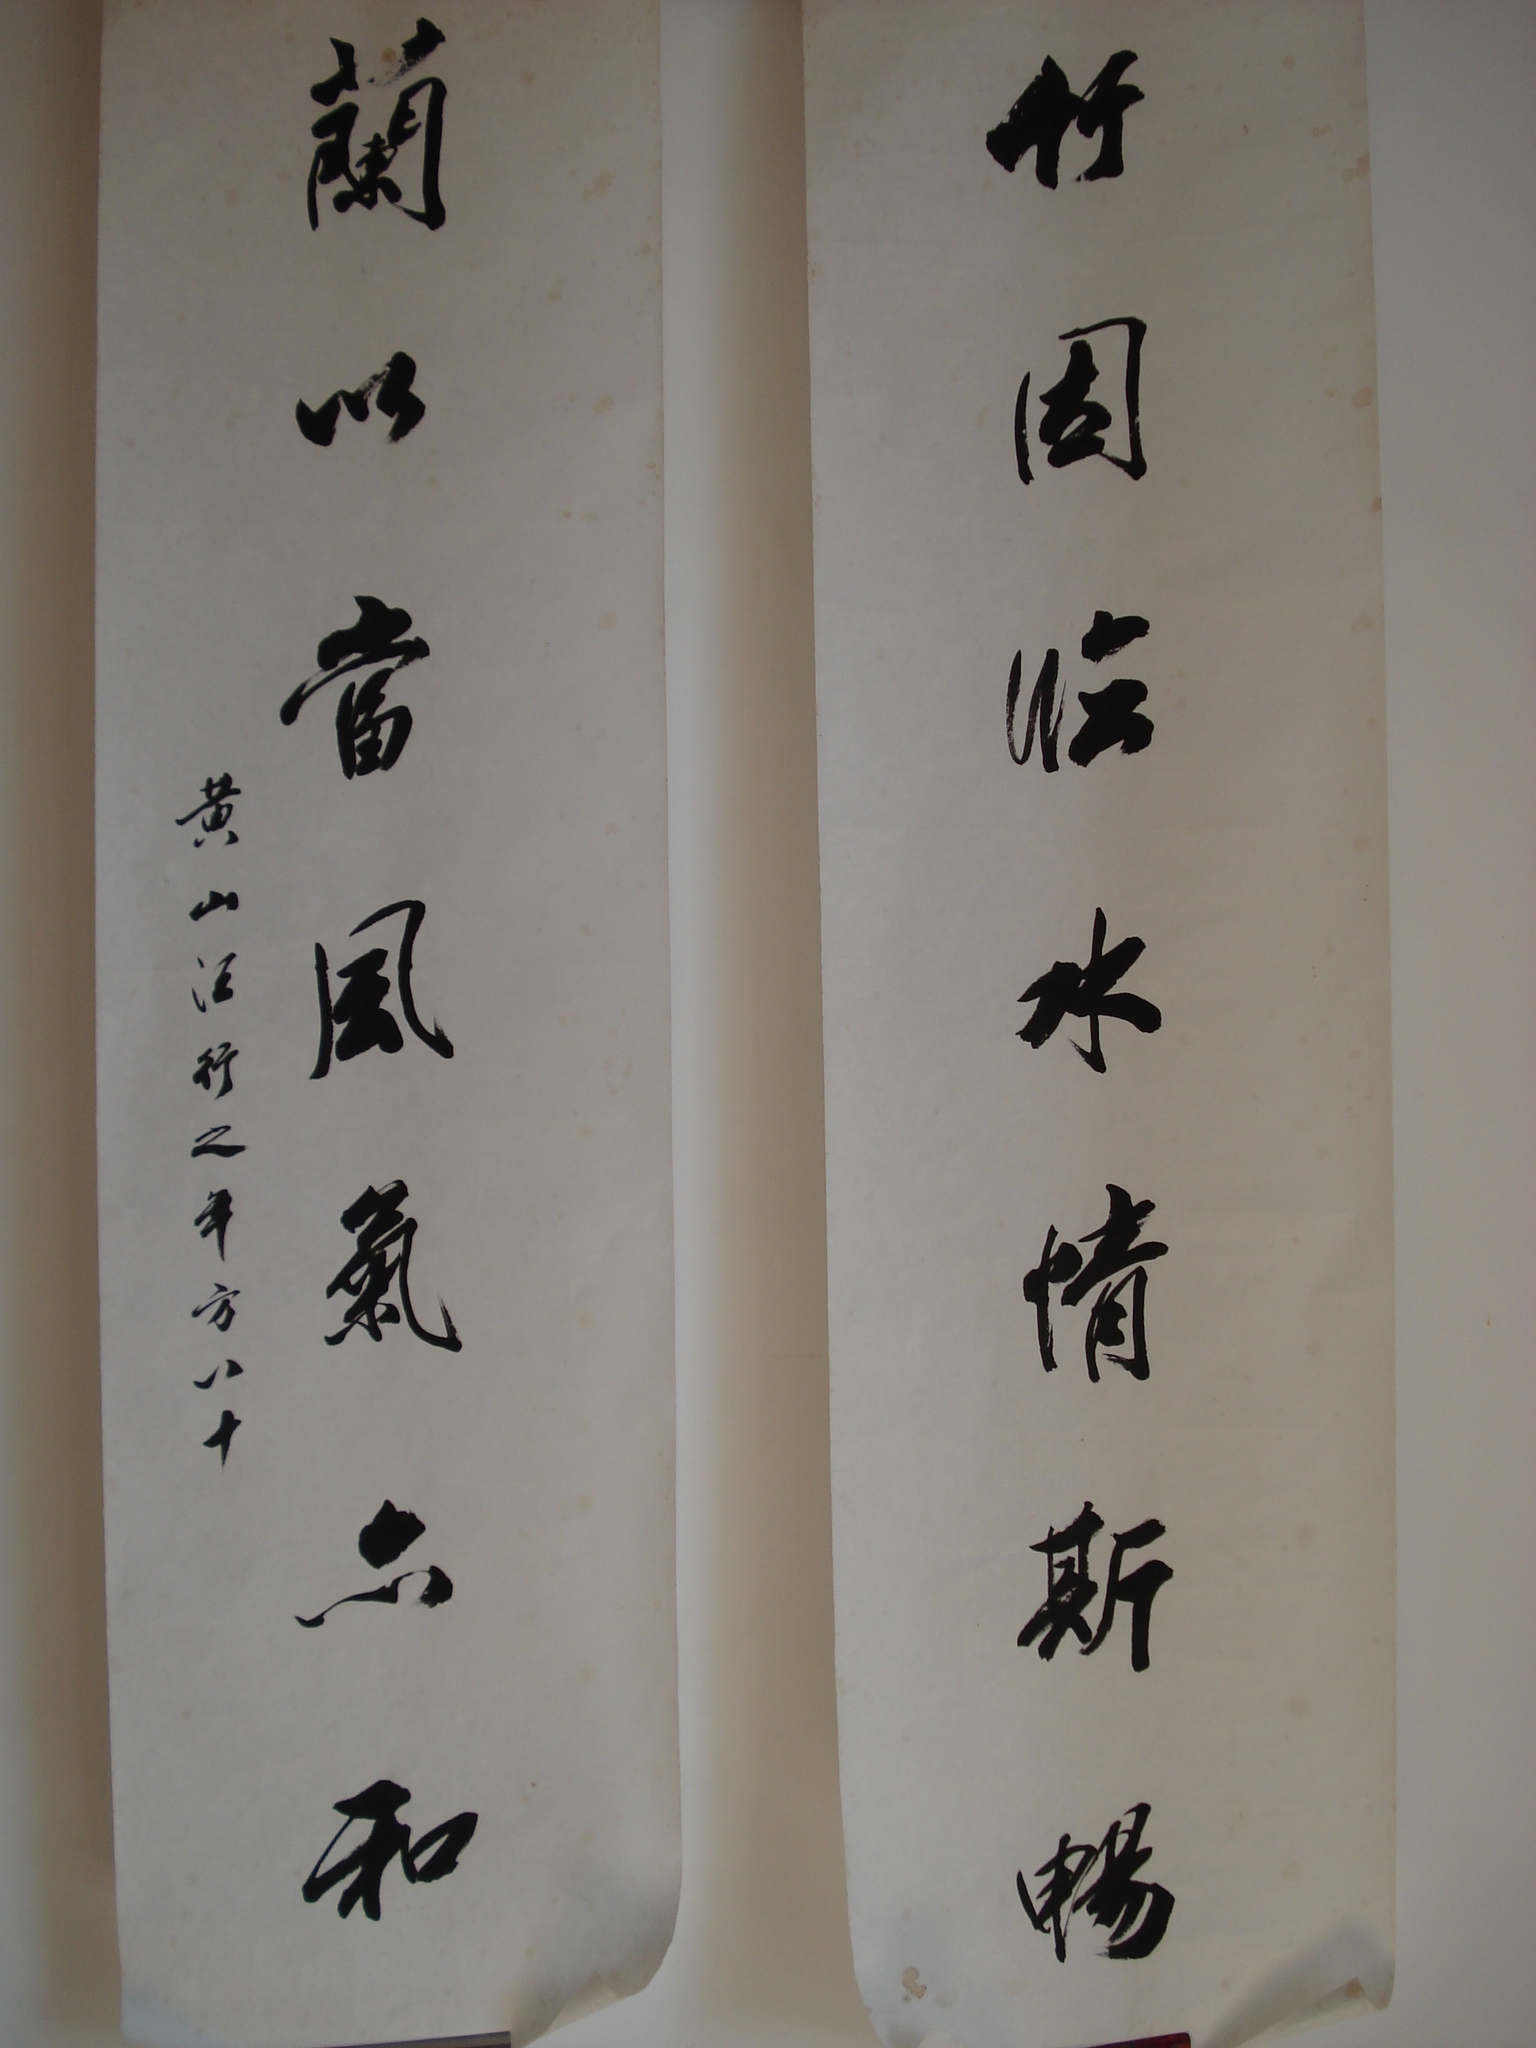 竹因临水情斯暢
蘭以當風氣亦和
黄山汪行之年方八十